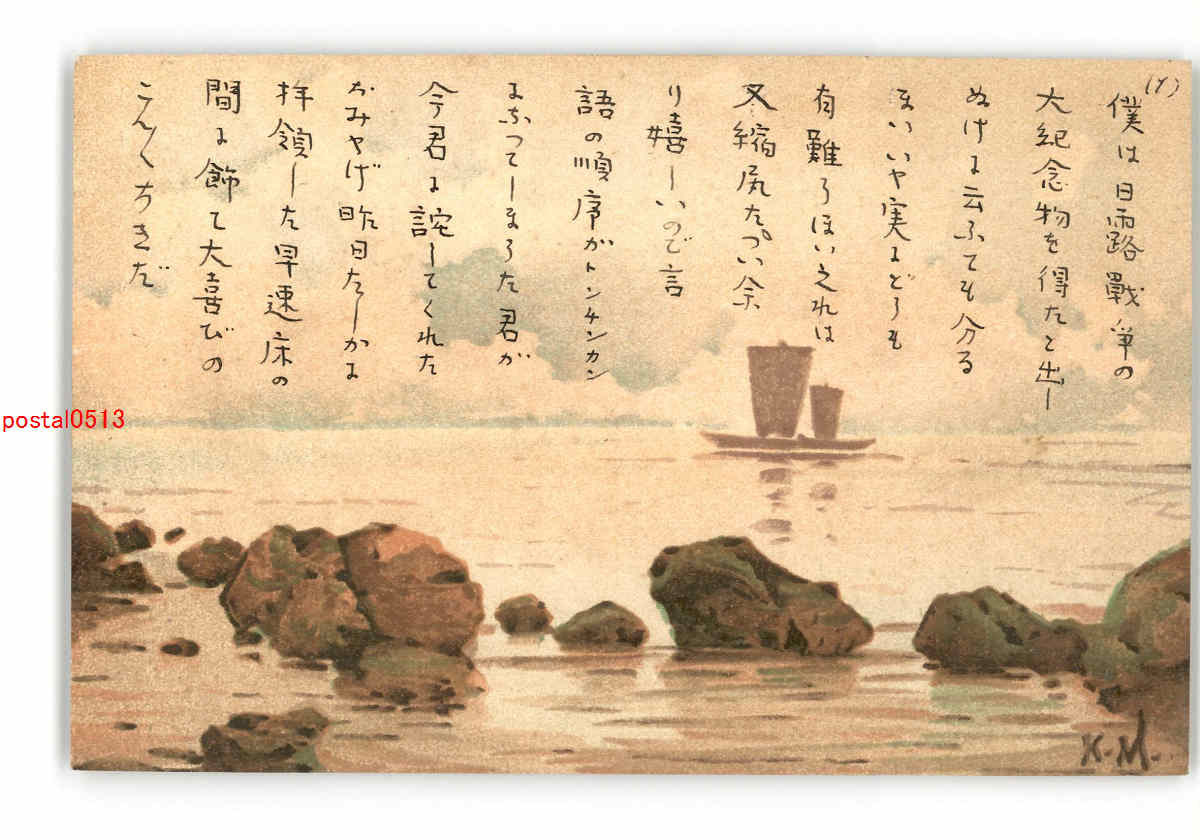 (1)
僕は日露戦争の
大紀念物を得たと出し
ぬけに云ふても分る
まいいや実にどうも
有難うほい之れは
又縮尻たつい余
り嬉しいので言
語の順序がトンチンカン
になつてしまうた君が
今君に詫してくれた
おみやげ昨日たしかに
拝領した早速床の
間に飾て大喜びの
こんこんちきだ
K.M.
postal0513